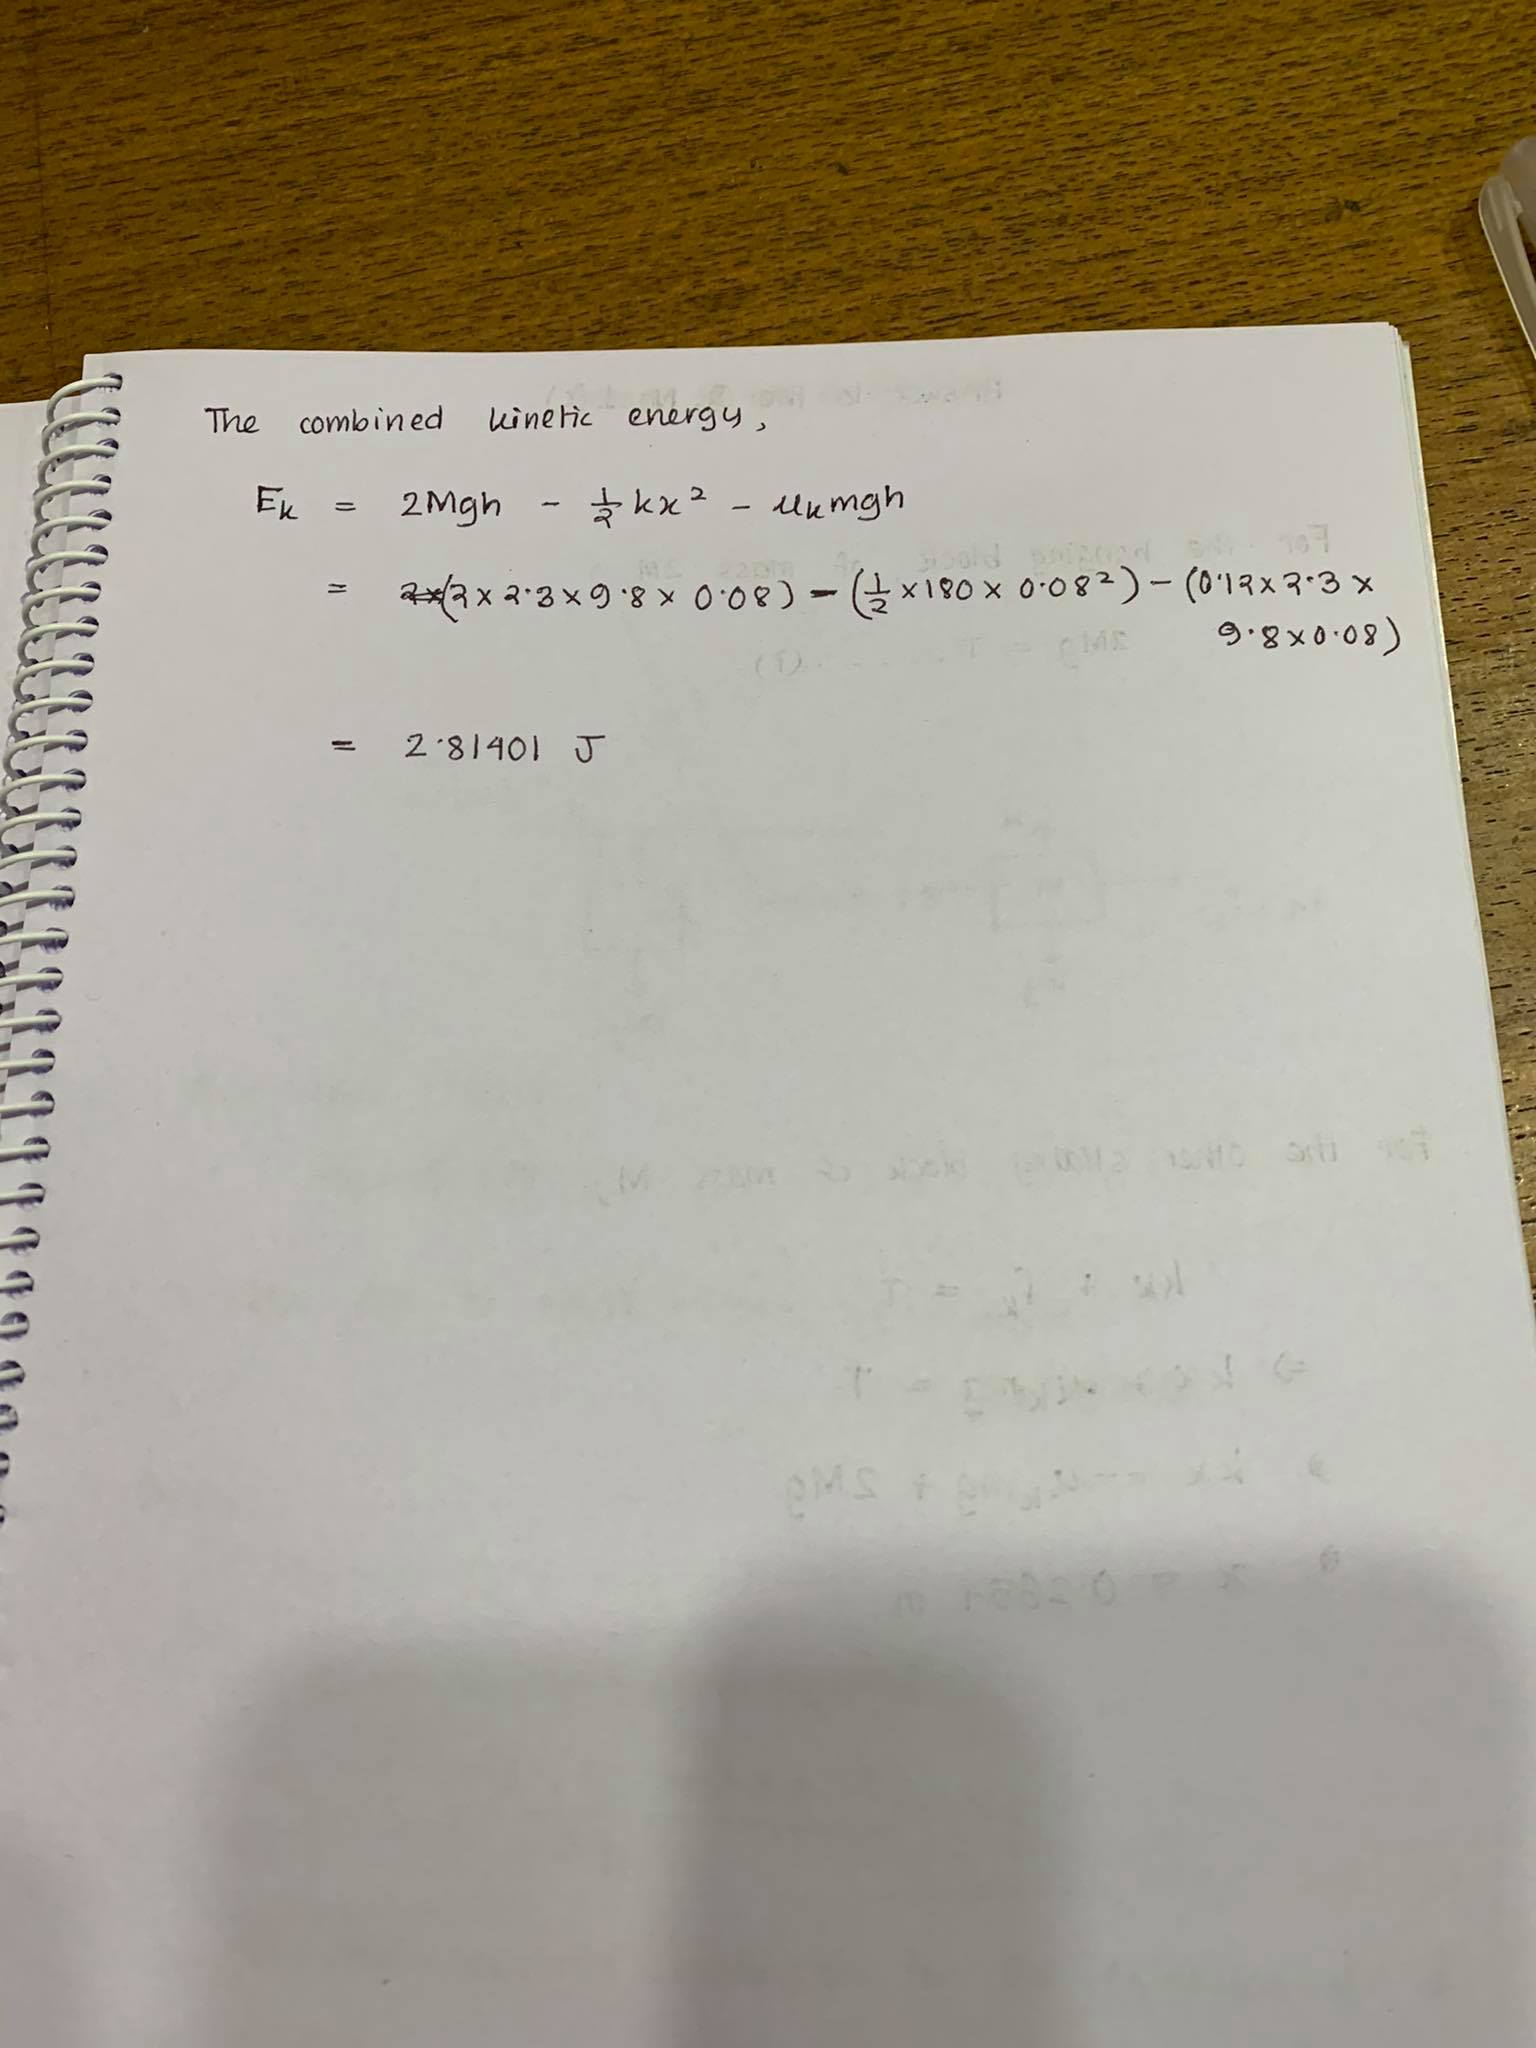 The combined kinetic energy,
Ek = 2Mgh - 1/2 kx² - μk mgh
= (2 × 2.3 × 9.8 × 0.08) - (1/2 × 180 × 0.08²) - (0.12 × 2.3 ×
9.8 × 0.08)
= 2.81401 J